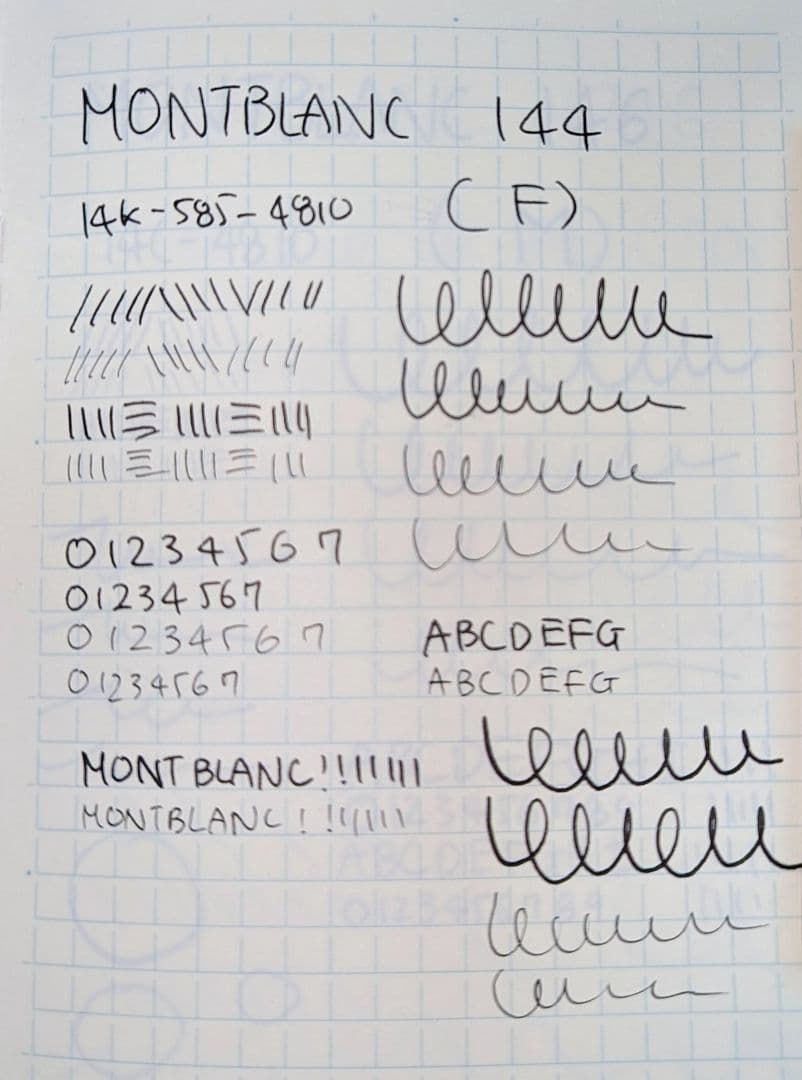 MONTBLANC 144
14K-585-4810 (F)
01234567
01234567
01234567
ABCDEFG
01234567
ABCDEFG
MONTBLANC!!!!!!!
MONTBLANC!!!!!!!